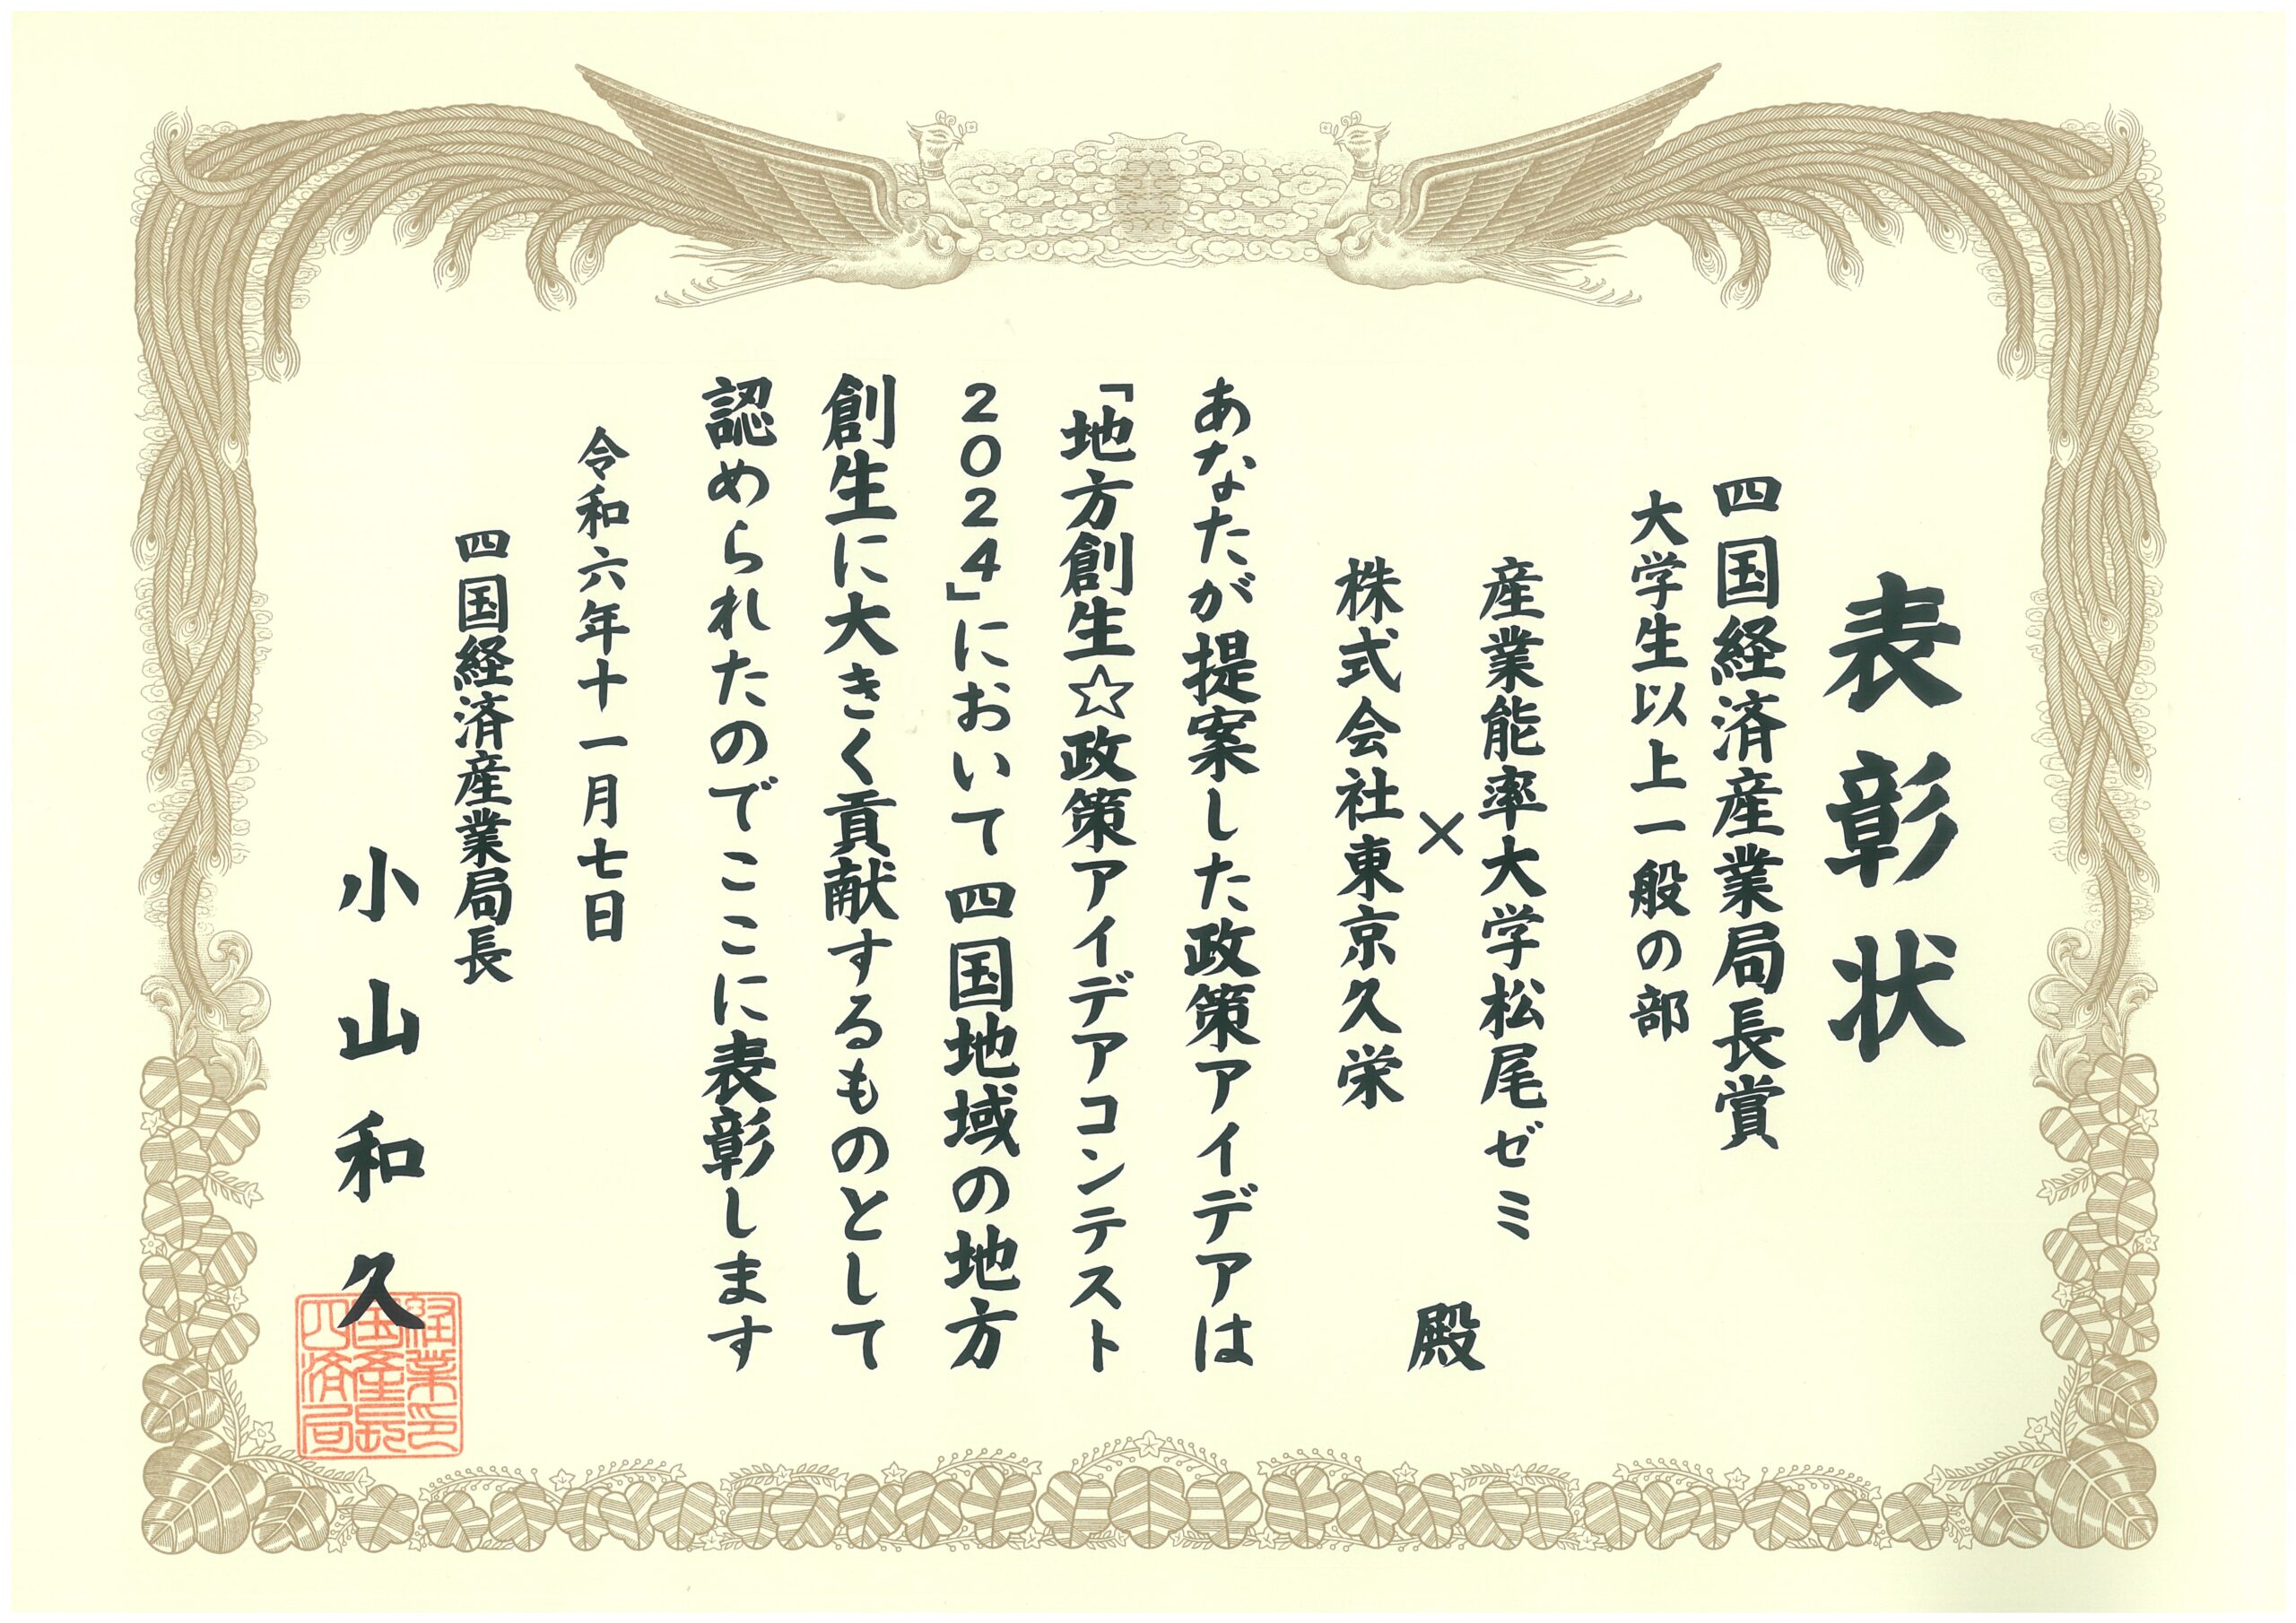 表彰状
四国経済産業局長賞
大学生以上一般の部
産業能率大学松尾ゼミ
×
株式会社東京久栄
殿
あなたが提案した政策アイデアは
「地方創生☆政策アイデアコンテスト
2024」において四国地域の地方
創生に大きく貢献するものとして
認められたのでここに表彰します
令和六年十一月七日
四国経済産業局長
小山和久
経業印
国産長
四済局